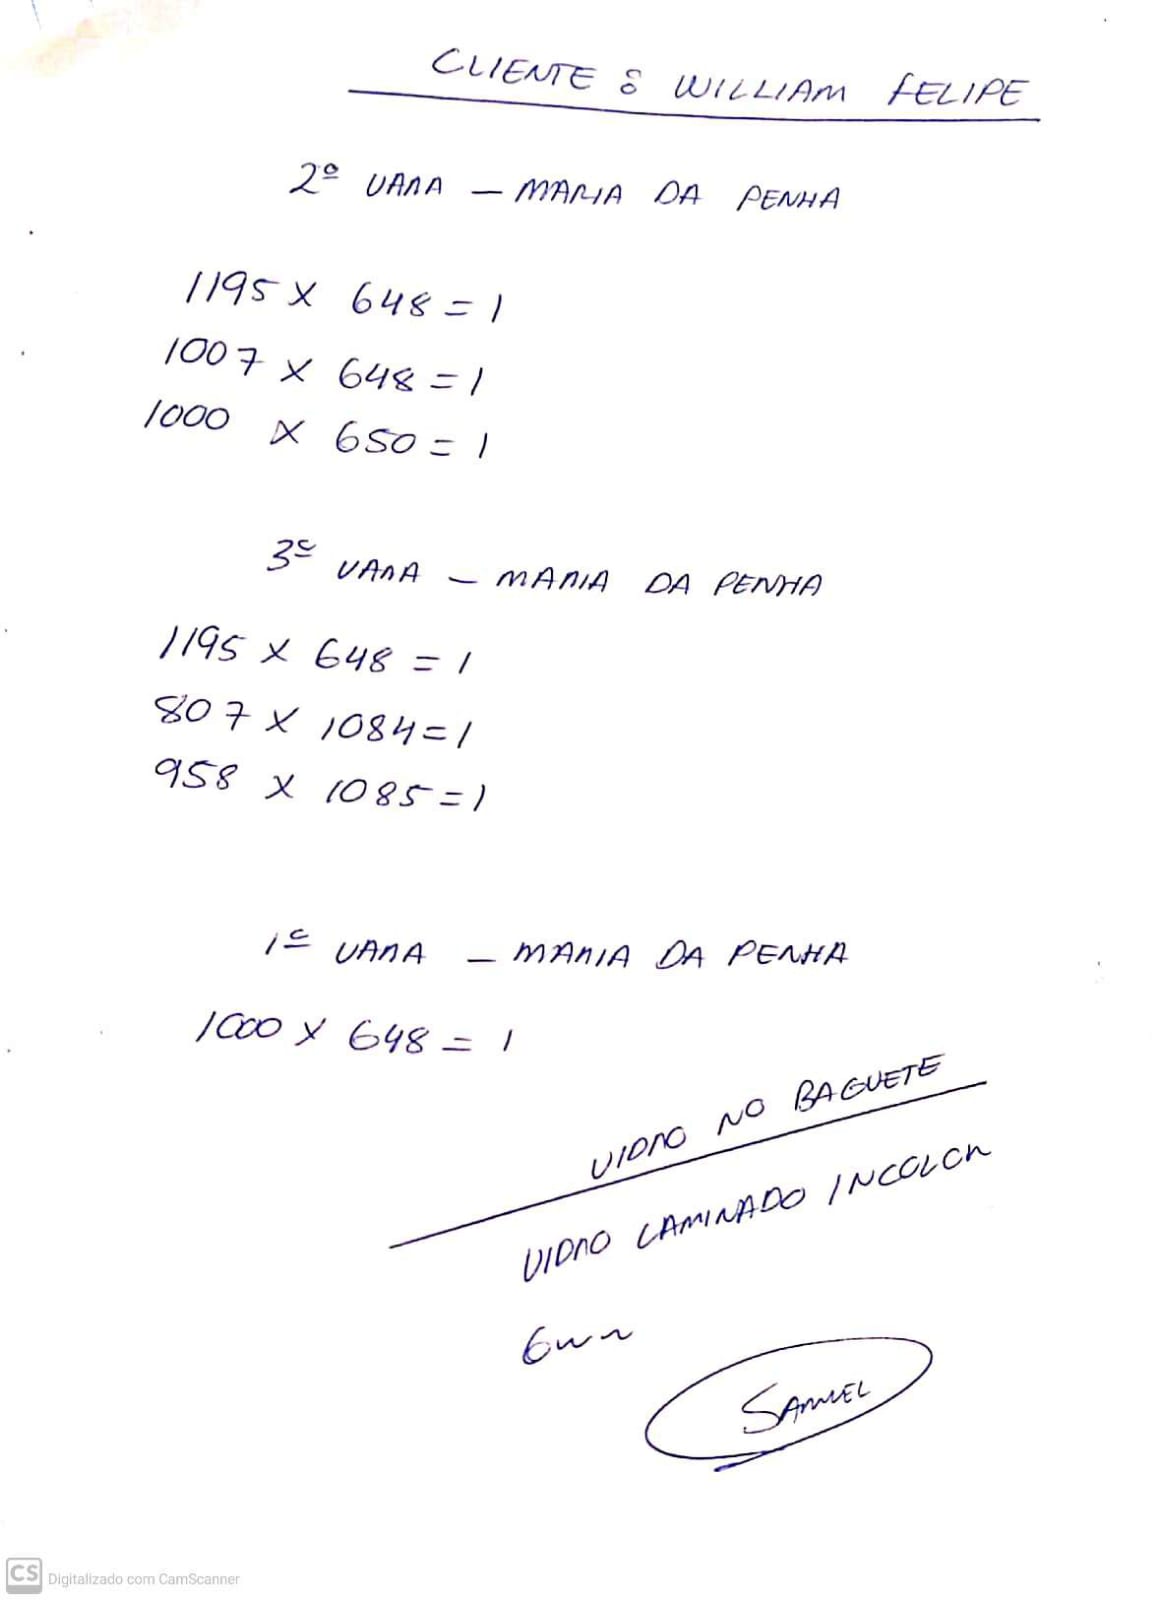 CLIENTE : WILLIAM FELIPE
2º VARA - MARIA DA PENHA
1195 X 648 = 1
1007 X 648 = 1
1000 X 650 = 1
3º VARA - MARIA DA PENHA
1195 X 648 = 1
807 X 1084 = 1
958 X 1085 = 1
1º VARA - MARIA DA PENHA
1000 X 648 = 1
VIDRO NO BAGUETE
VIDRO LAMINADO INCOLOR
6mm
SAMUEL
CS Digitalizado com CamScanner